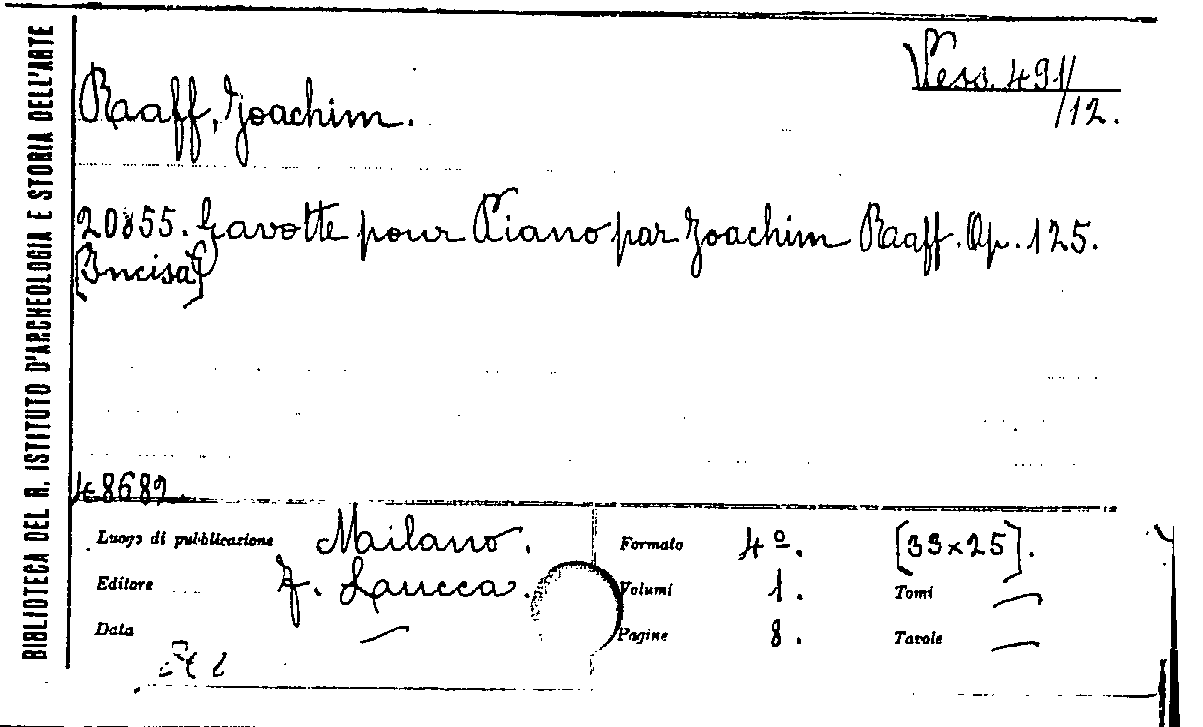 BIBLIOTECA DEL R. ISTITUTO D'ARCHEOLOGIA E STORIA DELL'ARTE
Vess. 491/
/12.
Raaff, Joachim.
20855. Gavotte pour Piano par Joachim Raaff. Op. 125.
[Incisa]
48682
Luogo di pubblicazione Mailano.
Editore F. Laucca.
Data —
Formato 4º. [33x25].
Volumi 1. Tomi —
Pagine 8. Tavole —